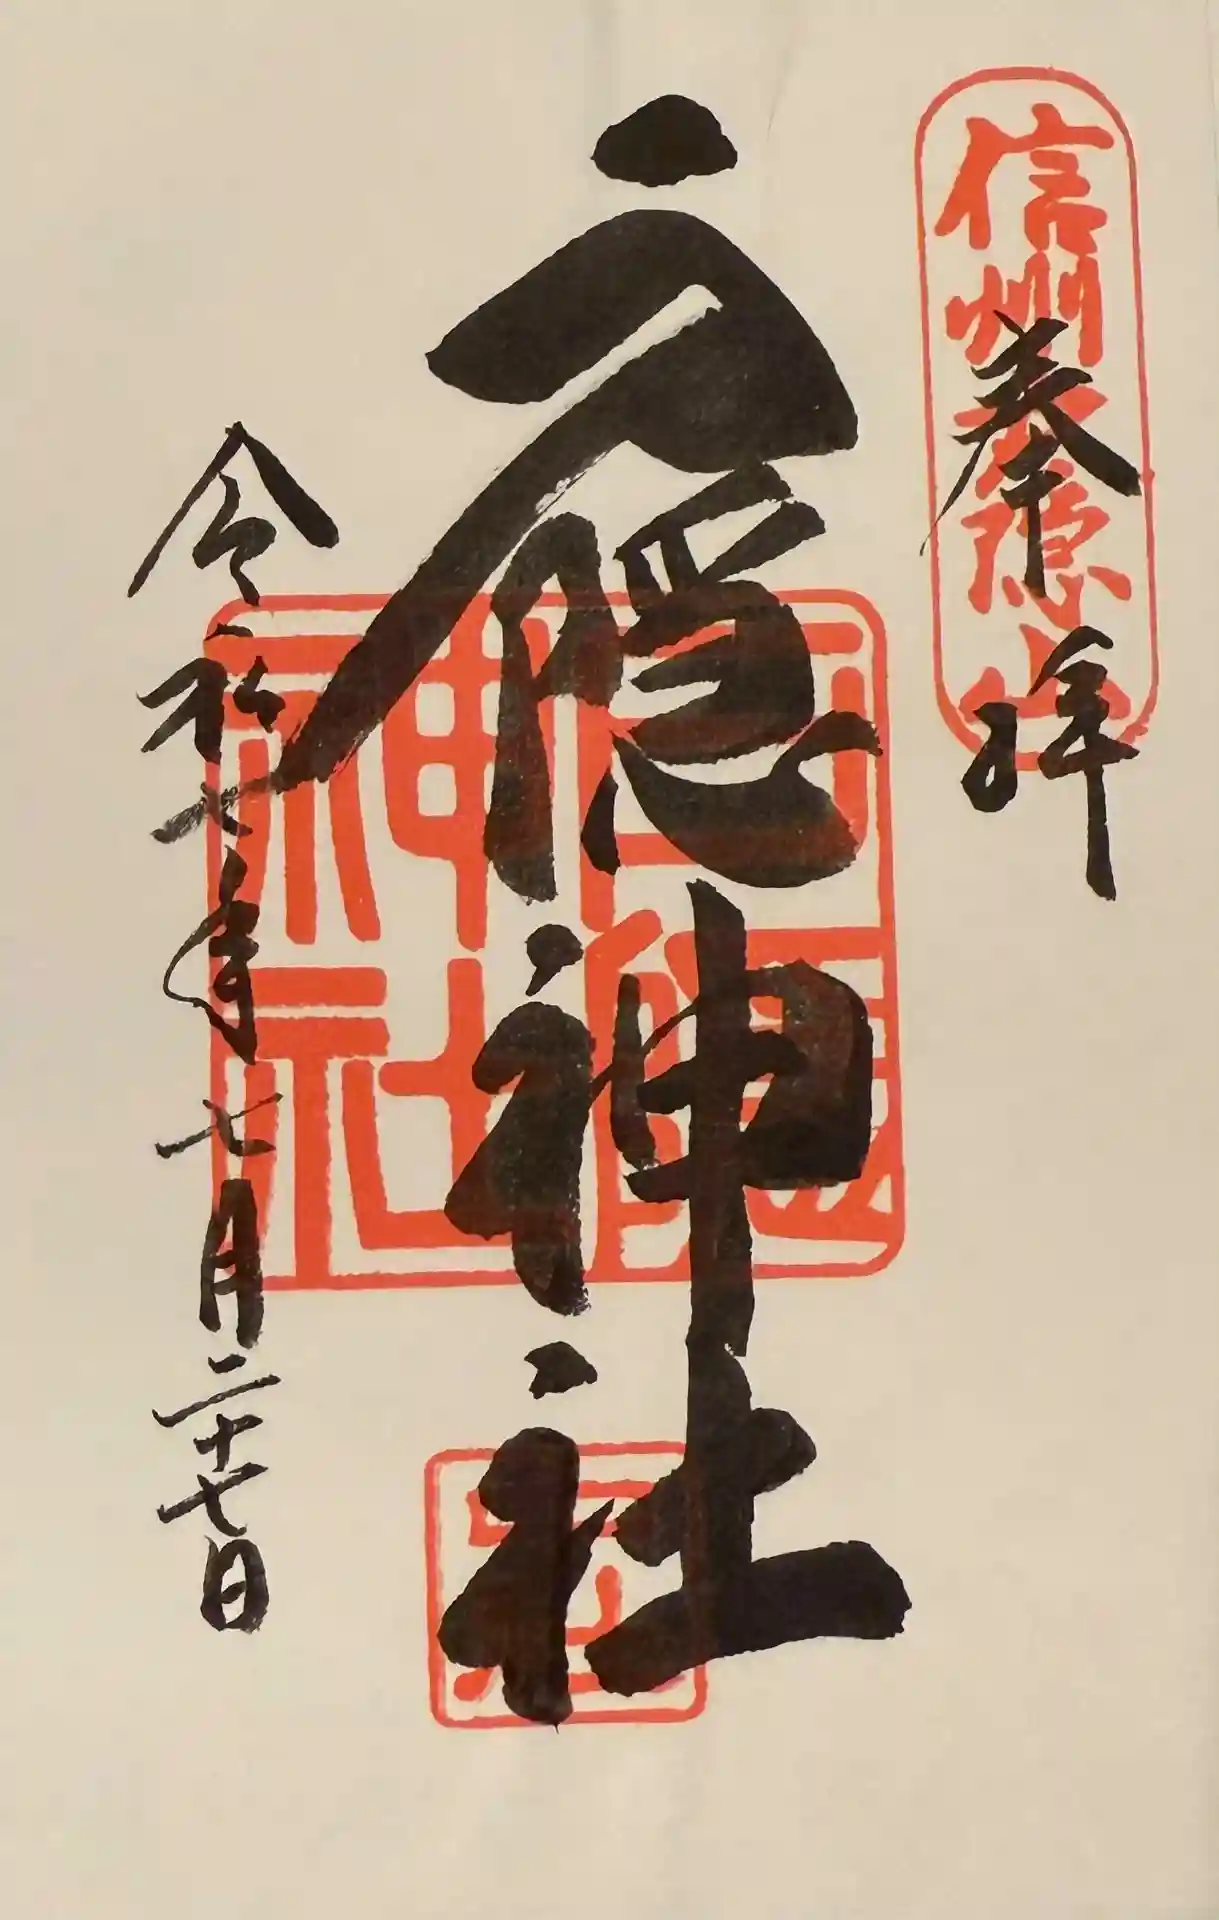 信州戸隠山
奉拝
戸隠神社
戸隠神社
令和七年七月二十七日